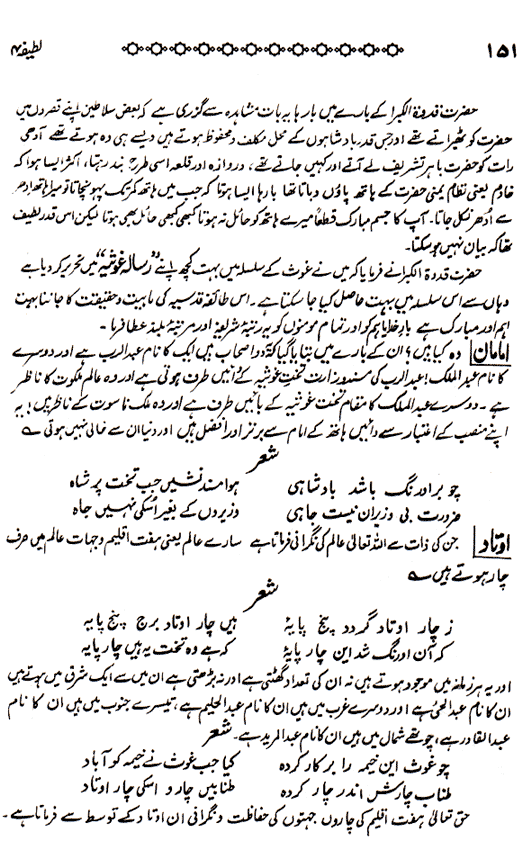 ۱۵۱ لطیفہ ۴
حضرت قدوۃ الکبرا کے بارے میں بارہا یہ بات مشاہدہ سے گزری ہے کہ بعض سلاطین اپنے قصروں میں
حضرت کو ٹھیراتے تھے اور جس قدر بادشاہوں کے محل مکلف و محفوظ ہوتے ہیں ویسے ہی وہ ہوتے تھے آدھی
رات کو حضرت باہر تشریف لے آتے اور کہیں جاتے تھے، دروازہ اور قلعہ اسی طرح بند رہتا، اکثر ایسا ہوا کہ
خادم یعنی نظام یمنی حضرت کے ہاتھ پاؤں دباتا تھا بارہا ایسا ہوتا کہ جب میں ہاتھ کمر تک پہونچاتا تو میرا ہاتھ ادھر
سے اُدھر نکل جاتا۔ آپ کا جسم مبارک قطعاً میرے ہاتھ کو حائل نہ ہوتا کبھی کبھی حائل بھی ہوتا لیکن اس قدر لطیف
تھا کہ بیان نہیں ہو سکتا۔
حضرت قدوۃ الکبرا نے فرمایا کہ میں نے غوث کے سلسلہ میں بہت کچھ اپنے "رسالہ غوثیہ" میں تحریر کر دیا ہے
وہاں سے اس سلسلہ میں بہت حاصل کیا جا سکتا ہے۔ اس طائفہ قدسیہ کی ماہیت و حقیقت کا جاننا بہت
اہم اور مبارک ہے بار خدایا ہم کو اور تمام مومنوں کو یہ رتبۂ شریفہ اور مرتبۂ بلند عطا فرما۔
امامان وہ کیا ہیں؟ ان کے بارے میں بتایا گیا کہ دو اصحاب ہیں ایک کا نام عبدالرب ہے اور دوسرے
کا نام عبدالملک! عبدالرب کی مسند وزارت تخت غوثیہ کے دائیں طرف ہوتی ہے اور وہ عالم ملکوت کا ناظر
ہے۔ دوسرے عبدالملک کا مقام تخت غوثیہ کے بائیں طرف ہے اور وہ ملک ناسوت کے ناظر ہیں! یہ
اپنے منصب کے اعتبار سے دائیں ہاتھ کے امام سے برتر اور افضل ہیں اور دنیا ان سے خالی نہیں ہوتی
شعر
چو بر اورنگ باشد بادشاہی ہوا مسند نشیں جب تخت پر شاہ
ضرورت بی وزیران نیست جاہی وزیروں کے بغیر اُسکی نہیں جاہ
اوتاد جن کی ذات سے اللہ تعالیٰ عالم کی نگرانی فرماتا ہے سارے عالم یعنی ہفت اقلیم و جہات عالم میں صرف
چار ہوتے ہیں
شعر
ز چار اوتاد گردد پنج پایۂ ہیں چار اوتاد برج پنج پایہ
کہ آن اورنگ شد این چار پایۂ کہ ہے وہ تخت یہ ہیں چار پایہ
اور یہ ہر زمانہ میں موجود ہوتے ہیں نہ ان کی تعداد گھٹتی ہے اور نہ بڑھتی ہے ان میں سے ایک شرق میں ہوتے ہیں
ان کا نام عبدالحئ ہے اور دوسرے غرب میں ہیں ان کا نام عبدالحلیم ہے، تیسرے جنوب میں ہیں ان کا نام
عبدالقادر ہے، چوتھے شمال میں ہیں ان کا نام عبدالمرید ہے۔ شعر
چو غوث این خیمہ را بر کار کردہ کیا جب غوث نے خیمہ کو آباد
طناب چارش اندر چار کردہ طنابیں چار و اسکی چار اوتاد
حق تعالیٰ ہفت اقلیم کی چاروں جہتوں کی حفاظت و نگرانی ان اوتاد کے توسط سے فرماتا ہے۔